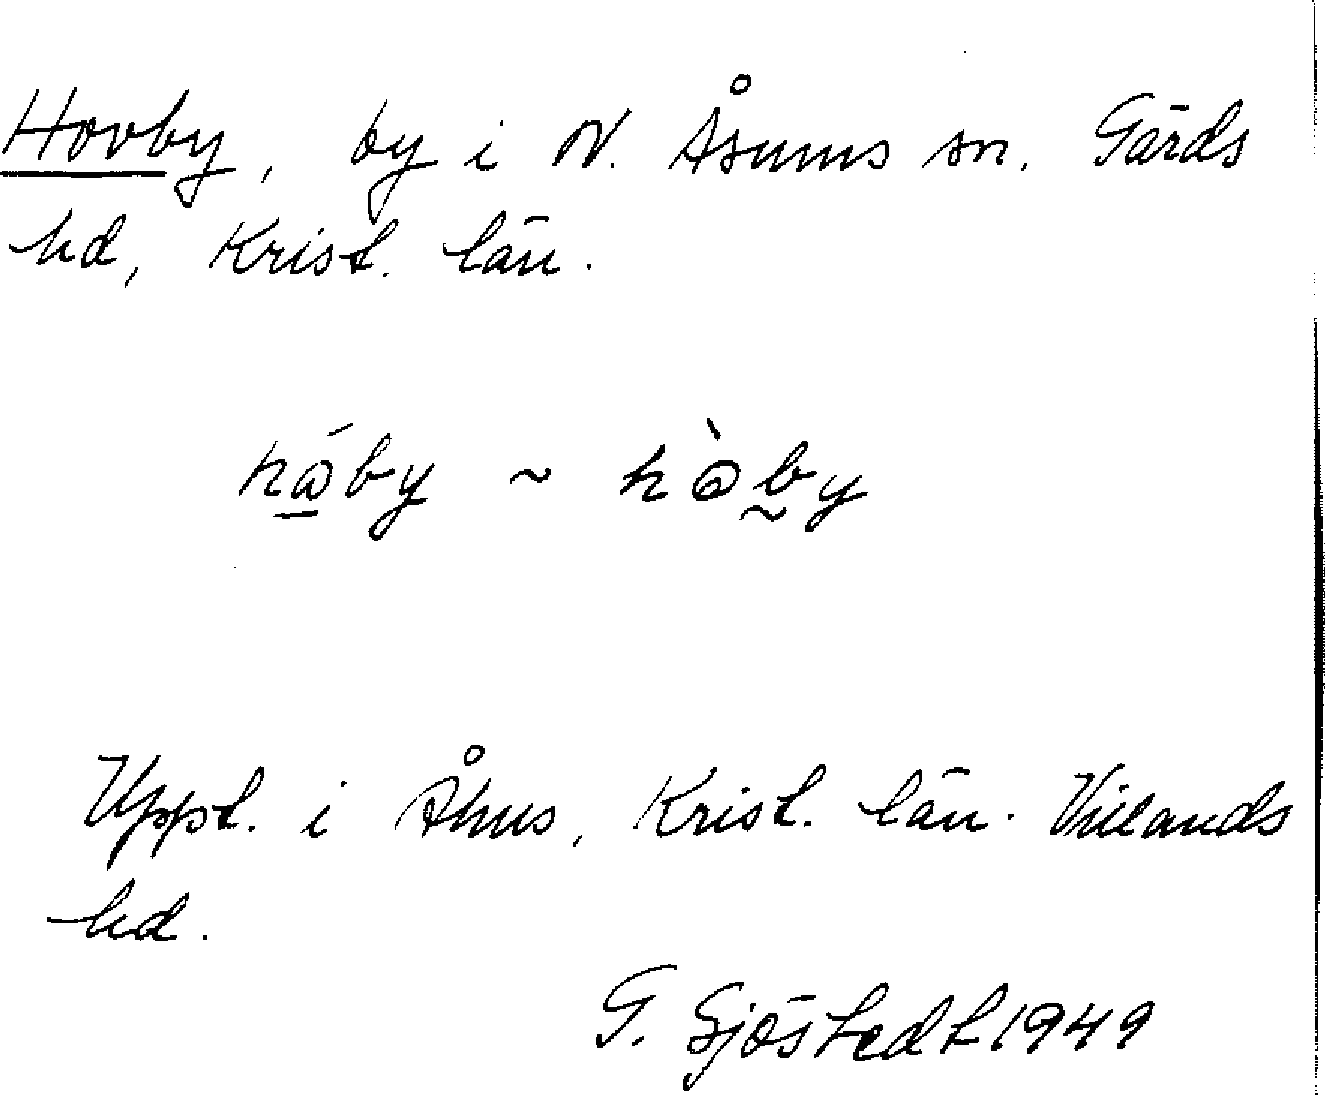 Hovby, by i N. Åsums sn. Gärds
hd, Krist. län.
hǻby ~ hòb̰y
Uppt. i Åhus, Krist. län. Villands
hd.
G. Sjöstedt 1949